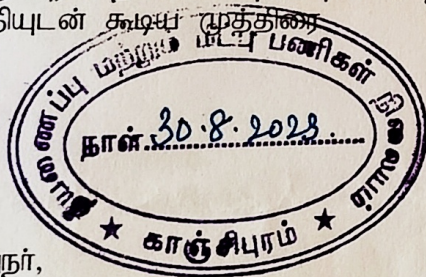 தியுடன் கூடிய முத்திரை
தீயணைப்பு மற்றும் மீட்பு பணிகள் நிலையம்
நாள். 30.8.2023
★ காஞ்சிபுரம் ★
நர்,